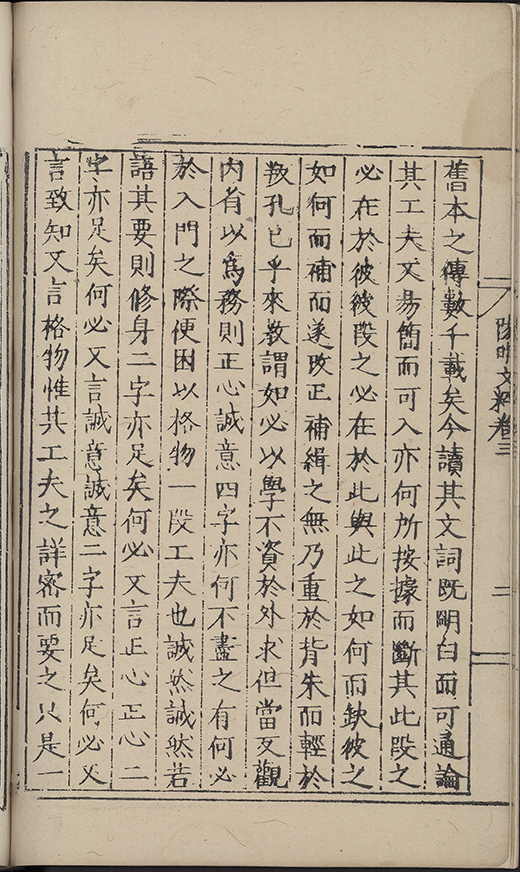 舊本之傳數千載矣今讀其文詞既明白而可通論
其工夫又易簡而可入亦何所按據而斷其此段之
必在於彼彼段之必在於此與此之如何而缺彼之
如何而補而遂改正補緝之無乃重於背朱而輕於
叛孔已乎來教謂如必以學不資於外求但當反觀
内省以爲務則正心誠意四字亦何不盡之有何必
於入門之際便困以格物一段工夫也誠然誠然若
語其要則修身二字亦足矣何必又言正心正心二
字亦足矣何必又言誠意誠意二字亦足矣何必又
言致知又言格物惟其工夫之詳密而要之只是一
陽明文粹卷三
二